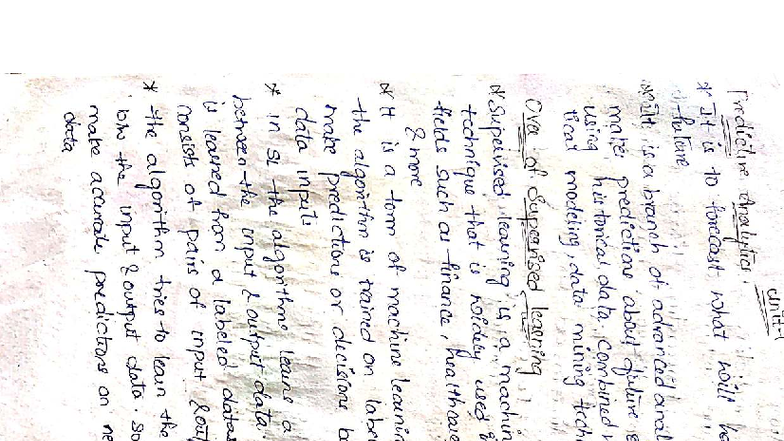 unit-1
Predictive analytics.
* It is to forecast what will
future
* It is a branch of advanced anal
make predictions about future
using historical data combined
tical modeling, data mining tech
Ove of Supervised learning
* Supervised learning is a machin
technique that is widely used
fields such as finance, healthcare
& more
* It is a form of machine learnin
the algorithm is trained on label
make predictions or decisions b
data inputs
* in SL the algorithm learns a
between the input & output data.
is learned from a labeled datas
consists of pairs of input & out
* the algorithm tries to learn the
b/w the input & output data. so
make accurate predictions on ne
data